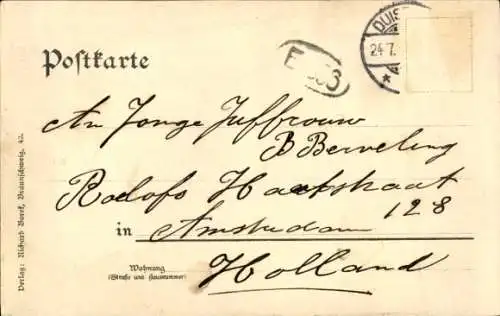 Postkarte
DUIS
24.7.
An Jonge Juffrouw
B Berveling
Rodolfs Hartstraat
128
in Amsterdam
Wohnung
(Straße und Hausnummer)
Holland
Verlag: Richard Borek, Braunschweig. 45.